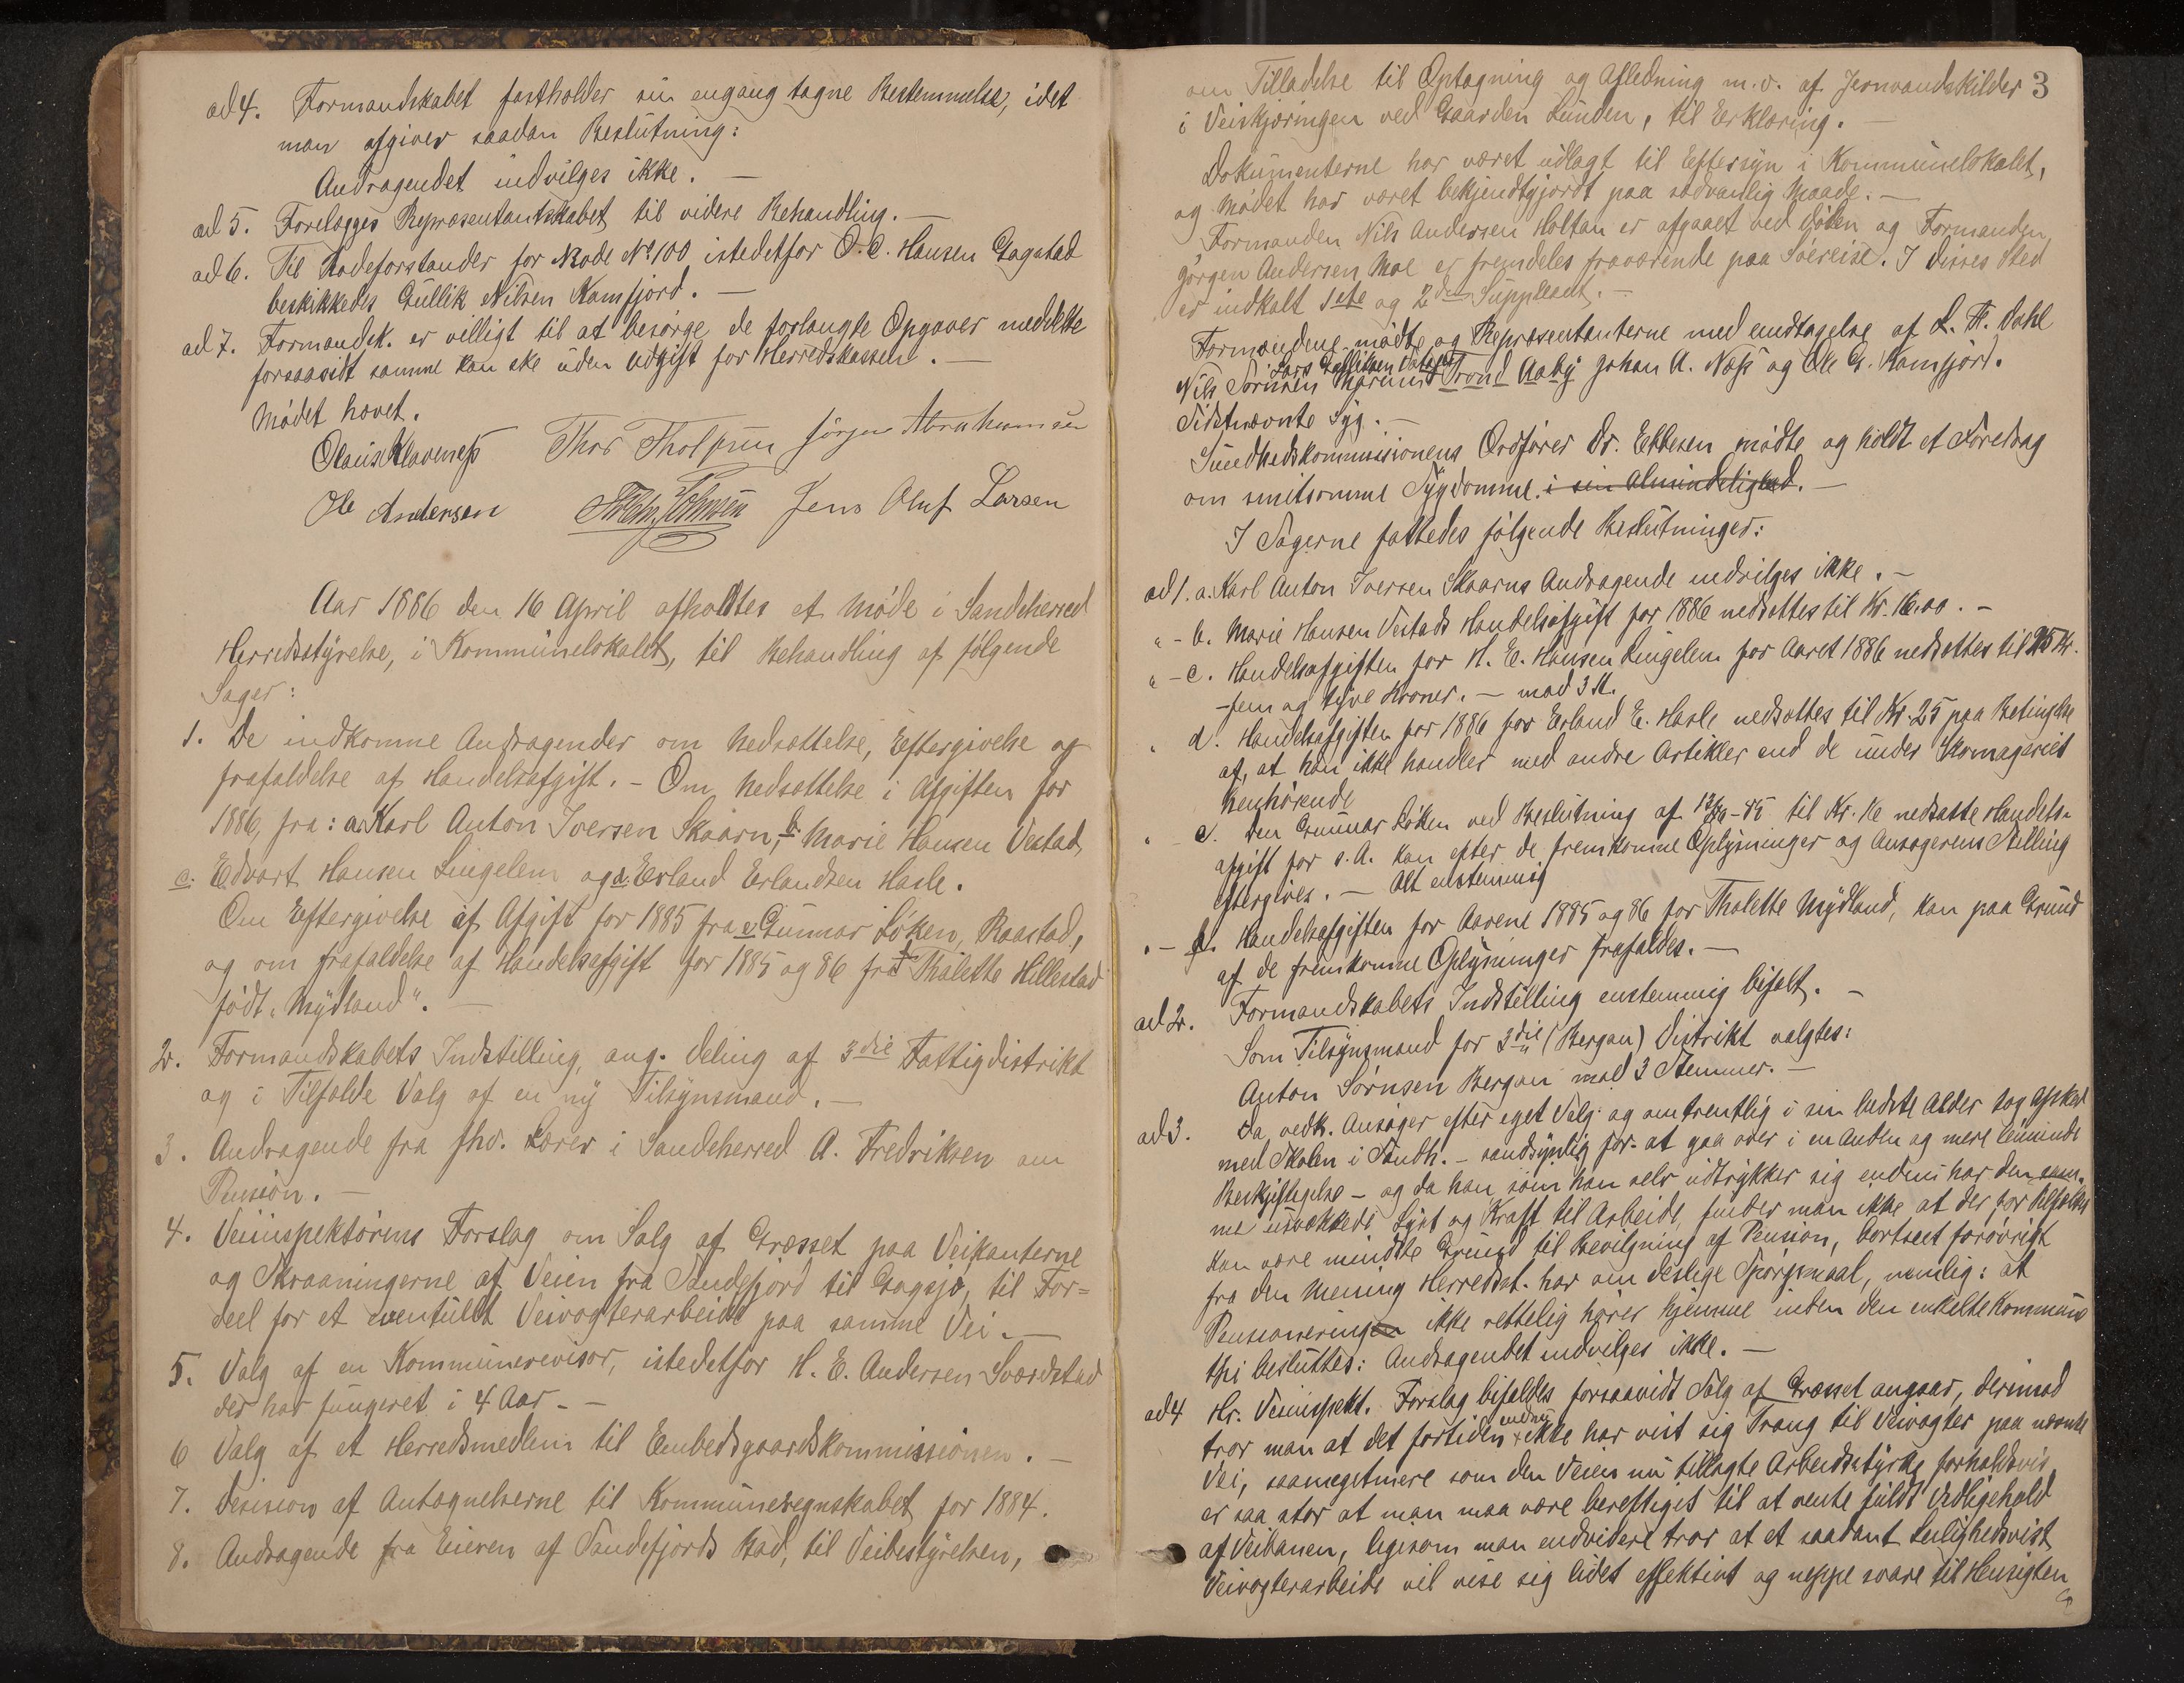 ad 4. Formandskabet fastholder sin engang tagne Bestemmelse, idet
man afgiver saadan Beslutning:
Andragendet indvilges ikke. —
ad 5. Forelægges Repræsentantskabet til videre Behandling. —
ad 6. Til Rodeforstander for Rode No 100 istedetfor O. C. Hansen Gogstad
beskikkedes Gullik Nilsen Kamfjord. —
ad 7. Formandsk. er villigt til at besørge de forlangte Opgaver meddelte
forsaavidt samme kan ske uden Udgift for Herredskassen. —
Mødet hævet.
Olaus Klaveness Thor Tholfsen Jørgen Abrahamsen
Ole Andersen Johnsen Jens Oluf Larsen
Aar 1886 den 16 April afholdtes et Møde i Sandeherred
Herredsstyrelse, i Kommunelokalet, til Behandling af følgende
Sager:
1. De indkomne Andragender om Nedsættelse, Eftergivelse og
frafaldelse af Handelsafgift. - Om Nedsættelse i Afgiften for
1886, fra: a. Karl Anton Iversen Skaarn, b. Marie Hansen Vestad,
c. Edvart Hansen Lingelem og d. Erland Erlandsen Hasle.
Om Eftergivelse af Afgift for 1885 fra e. Gunnar Løken, Raastad,
og om frafaldelse af Handelsafgift for 1885 og 86 fra f. Thalette Hillestad
født „Mydland". —
2. Formandskabets Indstilling, ang. Deling af 3die Fattigdistrikt
og i Tilfælde Valg af en ny Tilsynsmand. —
3. Andragende fra fhv. Lærer i Sandeherred A. Fredriksen om
Pension. —
4. Veiinspektørens Forslag om Salg af Græsset paa Veikanterne
og Skraaningerne af Veien fra Sandefjord til Gogsjø, til For=
deel for et eventuelt Veivogterarbeide paa samme Vei. —
5. Valg af en Kommunerevisor, istedetfor H. E. Andersen Sværdstad
der har fungeret i 4 Aar. —
6 Valg af et Herredsmedlem til Embedsgaardskommissionen. —
7. Desision af Antegnelserne til Kommuneregnskabet for 1884.
8. Andragende fra Eieren af Sandefjords Bad, til Veibestyrelsen,
3
om Tilladelse til Optagning og Afledning m.v. af Jernvandskilder
i Veiskjæringen ved Gaarden Lunden, til Erklæring. —
Dokumenterne har været udlagt til Eftersyn i Kommunelokalet,
og Mødet har været bekjendtgjordt paa sædvanlig Maade. —
Formanden Nils Andersen Holtan er afgaaet ved Døden og Formanden
Jørgen Andersen Moe er fremdeles fraværende paa Søereise. I disses Sted
er indkalt 1ste og 2den Suppleant. —
Formændene mødte og Repræsentanterne med undtagelse af L. A. Dahl
Lars Gulliksen
Nils Sørensen Trond Aaby Johan A. Næss og Ole G. Kamfjord.
Sidstnævnte Syg. —
Sundhedskommissionens Ordfører Dr. Ebbesen mødte og holdt et Foredrag
om smitsomme Sygdomme. i sin Almindelighed. —
I Sagerne fattedes følgende Beslutninger:
ad 1. a. Karl Anton Iversen Skaarns Andragende indvilges ikke. —
" - b. Marie Hansen Vestads Handelsafgift for 1886 nedsættes til Kr. 16.00. —
" - c. Handelsafgiften for H. E. Hansen Lingelem for Aaret 1886 nedsættes til 25 Kr.
- fem og tyve Kroner. — mod 3 St.
" d. Handelsafgiften for 1886 for Erland E. Hasle nedsættes til Kr. 25 paa Betingelse
af, at han ikke handler med andre Artikler end de under Skomageriet
henhørende
" - e. Den Gunnar Løken ved Beslutning af til Kr. 16 nedsatte Handels-
afgift for s. A. kan efter de fremkomne Oplysninger og Ansøgerens Stilling
eftergives. — Alt enstemmig
" - f. Handelsafgiften for Aarene 1885 og 86 for Thalette Mydland, kan paa Grund
af de fremkomne Oplysninger frafaldes. —
ad 2. Formandskabets Indstilling enstemmig bifalt. —
Som Tilsynsmand for 3die (Bergan) Distrikt valgtes:
Anton Sørnsen Bergan mod 3 Stemmer. —
ad 3. Da vedk. Ansøger efter eget Valg og omtrentlig i sin bedste Alder tog Afsked
med Skolen i Sandh. - sandsynlig for at gaa over i en Anden og mere lønnende
Beskjæftigelse - og da han, som han selv udtrykker sig endnu har den sam-
me usvækkede Lyst og Kraft til Arbeide, finder man ikke at der for Tilfældet
kan være mindste Grund til Bevilgning af Pension, bortseet forøvrigt
fra den Mening Herredsst. har om deslige Spørgsmaal, nemlig: at
Pensionering ikke rettelig hører hjemme inden den enkelte Kommune
thi besluttes: Andragendet indvilges ikke. —
ad 4 Hr. Veiinspekt. Forslag bifaldes forsaavidt Salg af Græsset angaar, derimod
endnu
tror man at det fortiden ikke har vist sig Trang til Veivogter paa nævnte
Vei, saameget mere som den Veien nu tillagte Arbeidsstyrke forholdsvis
er saa stor at man maa være berettiget til at vente fuldt Vedligehold
af Veibanen, ligesom man endvidere tror at et saadant Leilighedsvist
Veivogterarbeide vil vise sig lidet effektivt og neppe svare til Hensigten